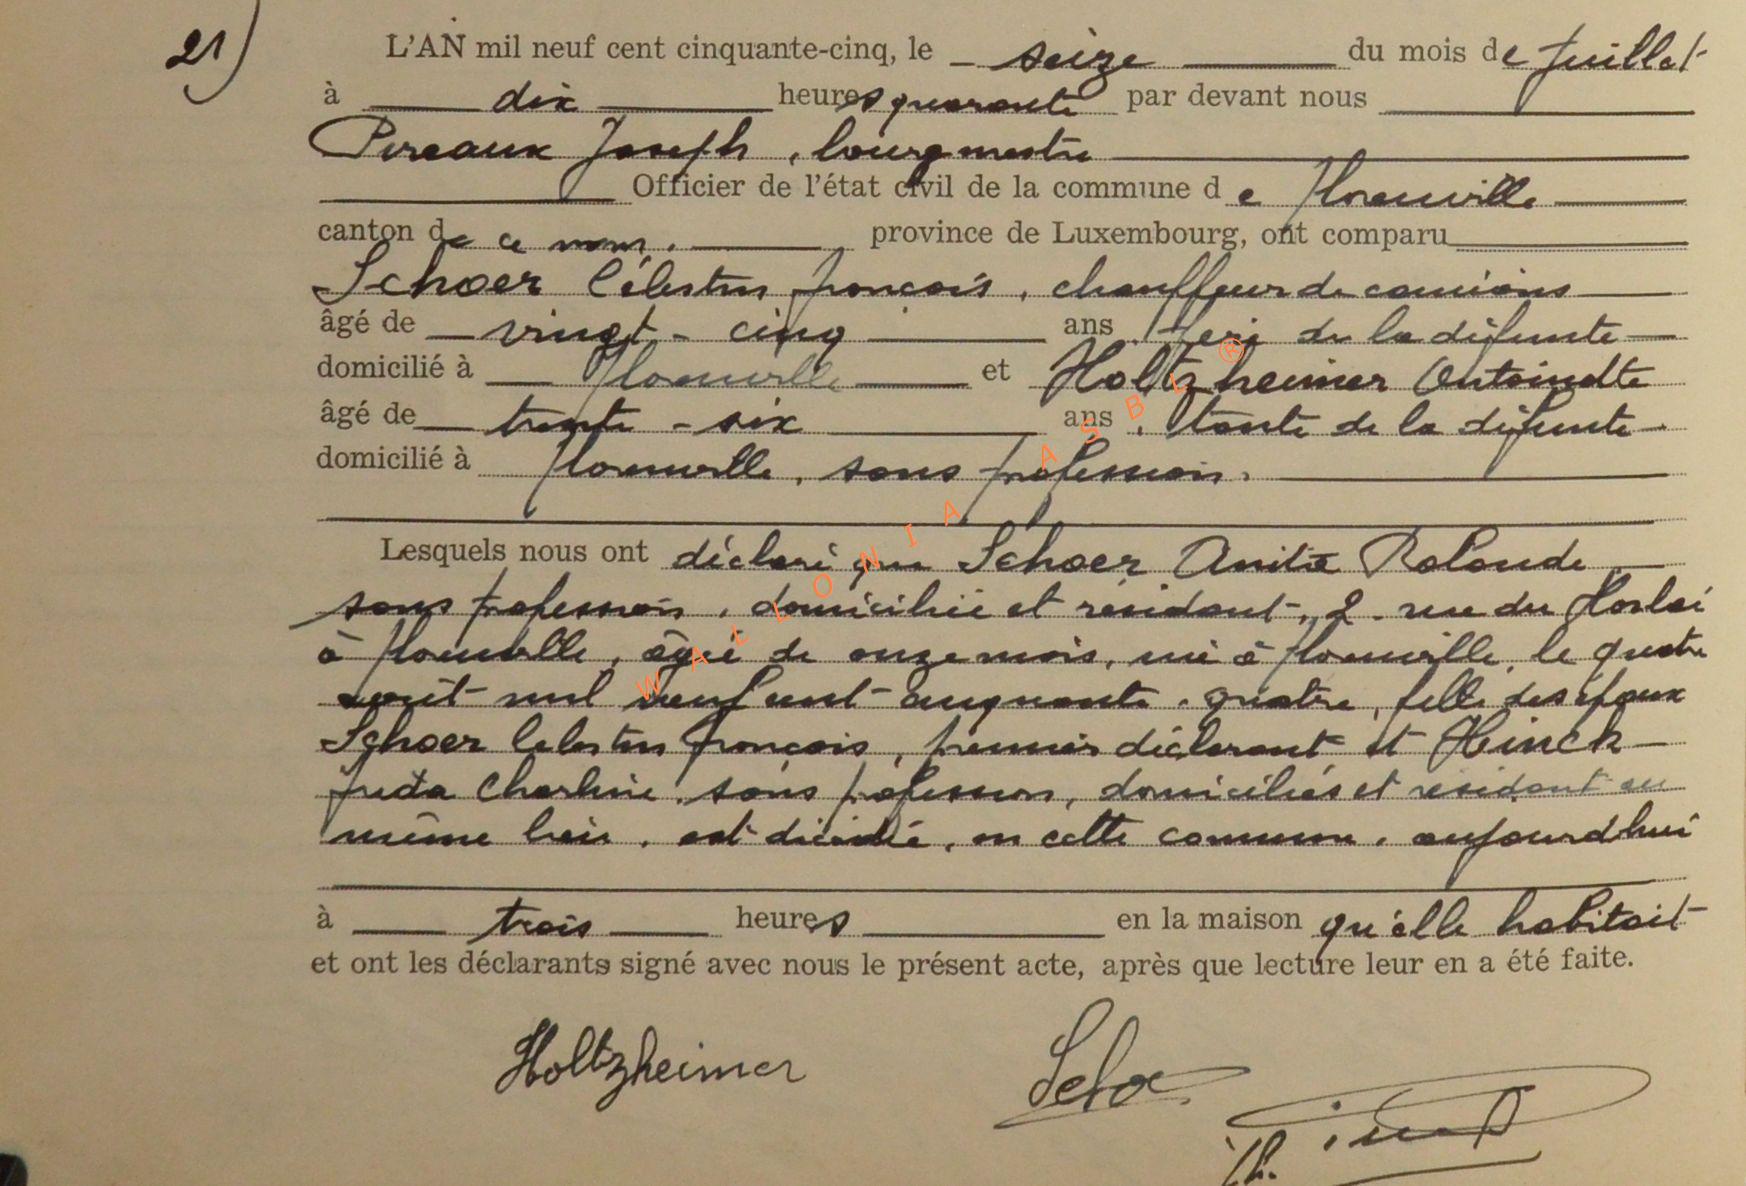 21)
L'AN mil neuf cent cinquante-cinq, le seize du mois de Juillet
à dix heures quarante par devant nous
Pireaux Joseph, bourgmestre
Officier de l'état civil de la commune de Florenville
canton de ce nom, province de Luxembourg, ont comparu
Schoer Célestin françois, chauffeur de camions
âgé de vingt-cinq ans, père de la défunte
domicilié à Florenville et Holtzheimer Antoinette
âgé de trente-six ans, tante de la défunte
domicilié à Florenville, sans profession.
Lesquels nous ont déclaré que Schoer Anita Rolande
sans profession, domiciliée et résidant, 2, rue du
à Florenville, âgée de onze mois, née à Florenville, le quatre
août mil neuf cent cinquante-quatre, fille des époux
Schoer Célestin françois, premier déclarant et Hinck
frieda Charline, sans profession, domiciliés et résidant au
même lieu, est décédée, en cette commune, aujourd'hui
à trois heures en la maison qu'elle habitait
et ont les déclarants signé avec nous le présent acte, après que lecture leur en a été faite.
Holtzheimer
WALLONIA ASBL ®